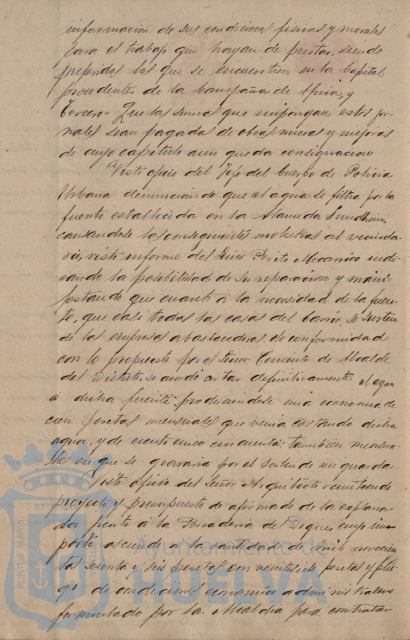 información de sus condiciones físicas y morales
para el trabajo que hayan de prestar, siendo
preferidos los que se encuentren en la Capital
procedentes de la Campaña de África, y
Tercero = Que las sumas que importan estos jor
nales sean pagadas de obras nuevas y mejoras
de cuyo capítulo aun queda consignación
Visto oficio del Jefe del Cuerpo de Policía
Urbana denunciando que el agua se filtra por la
fuente establecida en la Alameda Sundheim,
causandole las consiguientes molestias al vecinda
rio, visto informe del Señor Perito Mecánico indi
cando la posibilidad de su reparación y mani
festando que cuanto a la necesidad de la fuen
te, que casi todas las casas del barrio, se surten
de las empresas abastecedoras, de conformidad
con lo propuesto por el Señor Teniente de Alcalde
del Distrito, se acordó cortar definitivamente el agua
a dicha fuente produciendole una economía de
cien pesetas mensuales que venia costando dicha
agua, y de ciento cinco cincuenta también mensua
les en que se gravaria por el sueldo de un guarda
Visto oficio del Señor Arquitecto remitiendo
proyecto y presupuesto de afirmado de la explana
da frente á la Panadería de cuyo im
porte asciende a la cantidad de mil novecien
tas sesenta y seis pesetas con veintiseis pesetas y plie
go de condiciones económico administrativo
formulado por la Alcaldía para contratar
PORTUS MARIS
Ayuntamiento de
HUELVA